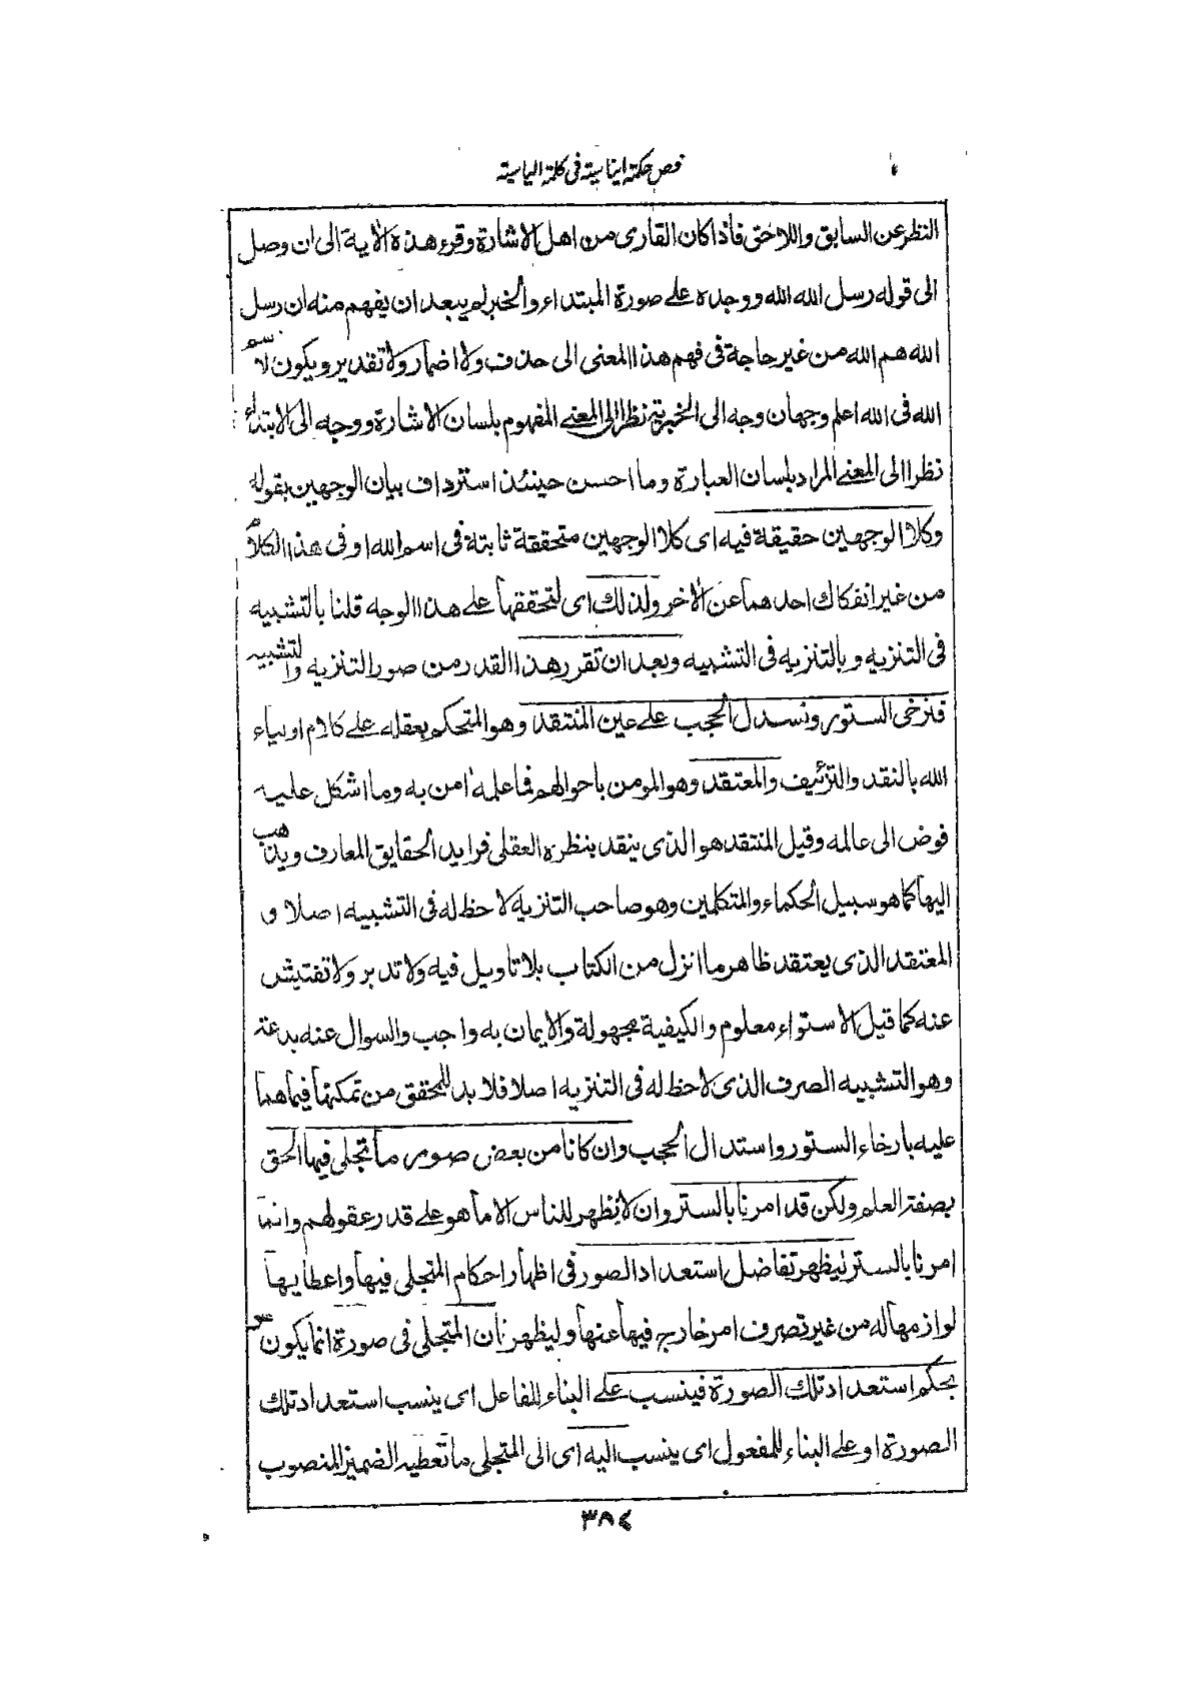 فص حكمة ايناسية فى كلمة الياسية
النظر عن السابق واللاحق فاذا كان القارى من اهل الاشارة وقرء هذه الآية الى ان وصل
الى قوله رسل الله الله ووجده على صورة المبتداء والخبر لم يبعد ان يفهم منه ان رسل
الله هم الله من غير حاجة فى فهم هذا المعنى الى حذف ولا اضمار ولا تقدير ويكون لاسم
الله فى الله اعلم وجهان وجه الى الخبرية نظرا الى المعنى المفهوم بلسان الاشارة ووجه الى الابتداء
نظرا الى المعنى المراد بلسان العبارة وما احسن حينئذ استرداف بيان الوجهين بقوله
وكلا الوجهين حقيقة فيه اى كلا الوجهين متحققة ثابتة فى اسم الله او فى هذا الكلام
من غير انفكاك احدهما عن الآخر ولذلك اى لتحققها على هذا الوجه قلنا بالتشبيه
فى التنزيه وبالتنزيه فى التشبيه وبعد ان تقرر هذا القدر من صور التنزيه والتشبيه
فنرخى الستور ونسدل الحجب على عين المنتقد وهو المتحكم بعقله على كلام اولياء
الله بالنقد والتزئيف والمعتقد وهو المومن باحوالهم فما علمه امن به وما اشكل عليه
فوض الى عالمه وقيل المنتقد هو الذى ينقد بنظره العقلى فرايد الحقايق المعارف ويذهب
اليها كما هو سبيل الحكماء والمتكلمين وهو صاحب التنزيه لا حظ له فى التشبيه اصلا و
المعتقد الذى يعتقد ظاهر ما انزل من الكتاب بلا تاويل فيه ولا تدبر ولا تفتيش
عنه كما قيل الاستواء معلوم والكيفية مجهولة والايمان به واجب والسوال عنه بدعة
وهو التشبيه الصرف الذى لا حظ له فى التنزيه اصلا فلا بد للمحقق من تمكنها فيما هما
عليه بارخاء الستور واستدال الحجب وان كانا من بعض صور ما تجلى فيها الحق
بصفة العلم ولكن قد امرنا بالستر وان لا نظهر للناس الا ما هو على قدر عقولهم وانما
امرنا بالستر ليظهر تفاضل استعداد الصور فى اظهار احكام المتجلى فيها واعطايها
لوازمها له من غير تصرف امر خارج فيها عنها وليظهر ان المتجلى فى صورة انما يكون
بحكم استعداد تلك الصورة فينسب على البناء للفاعل اى ينسب استعداد تلك
الصورة او على البناء للمفعول اى ينسب اليه اى الى المتجلى ما تعطيه الضمير المنصوب